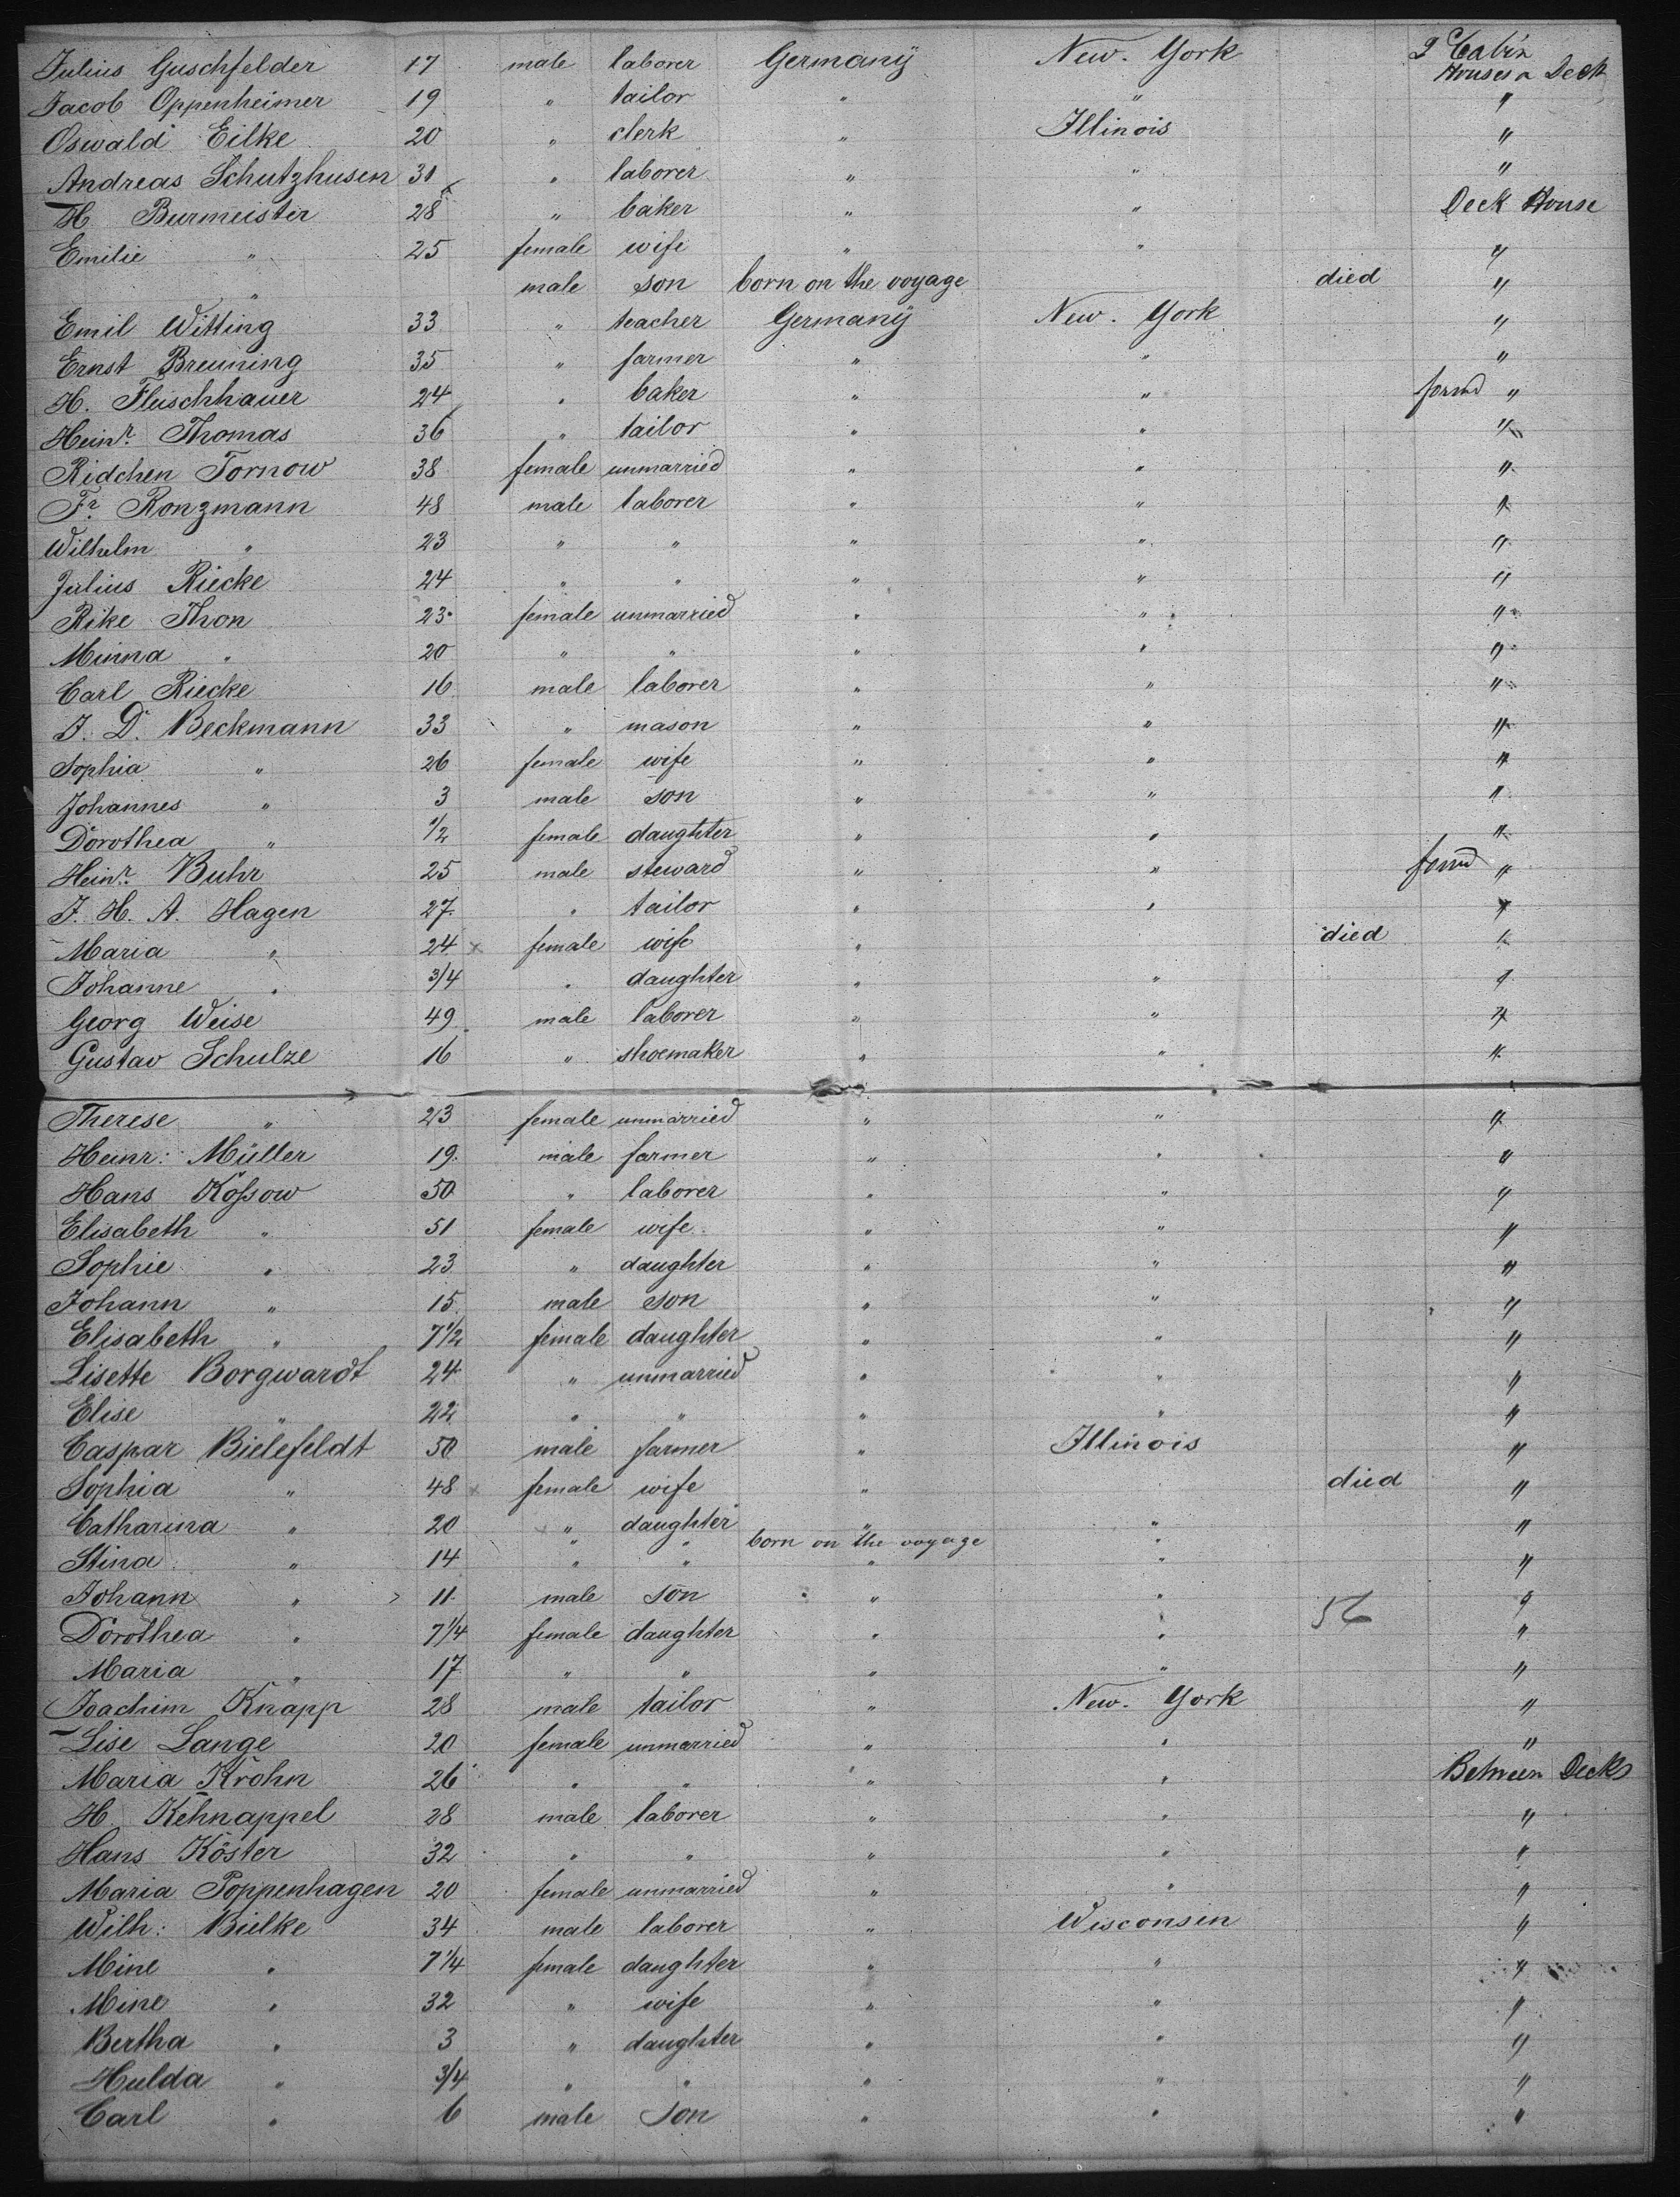 Julius Guschfelder 17 male laborer Germany New. York 2 Cabin Houses a Deck
Jacob Oppenheimer 19 " tailor " " "
Oswald Eilke 20 " clerk " Illinois "
Andreas Schutzhusen 31 " laborer " " "
H. Burmeister 28 " baker " " Deck House
Emilie " 25 female wife " " "
" male son born on the voyage died "
Emil Witting 33 " teacher Germany New. York "
Ernst Breuning 35 " farmer " " "
H. Fleischhauer 24 " baker " " "
Heinr. Thomas 36 " tailor " " "
Ridchen Tornow 38 female unmarried " " "
Fr. Ronzmann 48 male laborer " " "
Wilhelm " 23 " " " " "
Julius Riecke 24 " " " " "
Rike Thon 23 female unmarried " " "
Minna " 20 " " " " "
Carl Riecke 16 male laborer " " "
J. D. Beckmann 33 " mason " " "
Sophia " 26 female wife " " "
Johannes " 3 male son " " "
Dorothea " 1/2 female daughter " " "
Heinr. Buhr 25 male steward " " "
J. H. A. Hagen 27 " tailor " " "
Maria " 24 x female wife " died "
Johanne " 3/4 " daughter " " "
Georg Weise 49 male laborer " " "
Gustav Schulze 16 " shoemaker " " "
Therese " 23 female unmarried " " "
Heinr: Müller 19 male farmer " " "
Hans Koſsow 50 " laborer " " "
Elisabeth " 51 female wife " " "
Sophie " 23 " daughter " " "
Johann " 15 male son " " "
Elisabeth " 7 1/2 female daughter " " "
Lisette Borgwardt 24 " unmarried " " "
Elise " 22 " " " " "
Caspar Bielefeldt 50 male farmer " Illinois "
Sophia " 48 x female wife " died "
Catharina " 20 " daughter " " "
" " born on the voyage "
Stina " 14 " " " " "
Johann " 11 male son " " 56 "
Dorothea " 7 1/4 female daughter " " "
Maria " 17 " " " " "
Joachim Knapp 28 male tailor " New. York "
Lise Lange 20 female unmarried " " "
Maria Krohn 26 " " " " Between Decks
H. Kehnappel 28 male laborer " " "
Hans Köster 32 " " " " "
Maria Poppenhagen 20 female unmarried " " "
Wilh: Bielke 34 male laborer " Wisconsin "
Mine " 7 1/4 female daughter " " "
Mine " 32 " wife " " "
Bertha " 3 " daughter " " "
Hulda " 3/4 " " " " "
Carl " 6 male son " " "